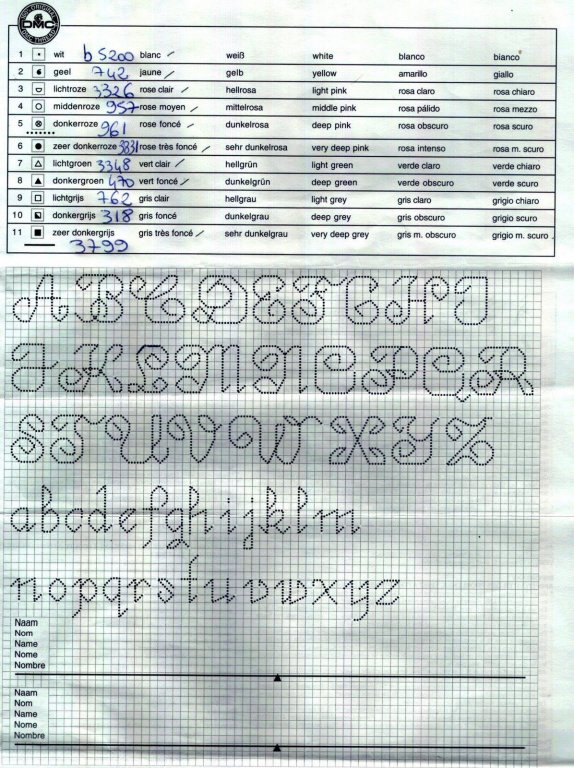 DMC
1 wit b5200 blanc weiß white blanco bianco
2 geel 742 jaune gelb yellow amarillo giallo
3 lichtroze 3326 rose clair hellrosa light pink rosa claro rosa chiaro
4 middenroze 957 rose moyen mittelrosa middle pink rosa pálido rosa mezzo
5 donkerroze 961 rose foncé dunkelrosa deep pink rosa obscuro rosa scuro
6 zeer donkerroze 3831 rose très foncé sehr dunkelrosa very deep pink rosa intenso rosa m. scuro
7 lichtgroen 3348 vert clair hellgrün light green verde claro verde chiaro
8 donkergroen 470 vert foncé dunkelgrün deep green verde obscuro verde scuro
9 lichtgrijs 762 gris clair hellgrau light grey gris claro grigio chiaro
10 donkergrijs 318 gris foncé dunkelgrau deep grey gris obscuro grigio scuro
11 zeer donkergrijs gris très foncé sehr dunkelgrau very deep grey gris m. obscuro grigio m. scuro
3799
A B C D E F G H I
J K L M N O P Q R
S T U V W X Y Z
a b c d e f g h i j k l m
n o p q r s t u v w x y z
Naam
Nom
Name
Nome
Nombre
Naam
Nom
Name
Nome
Nombre